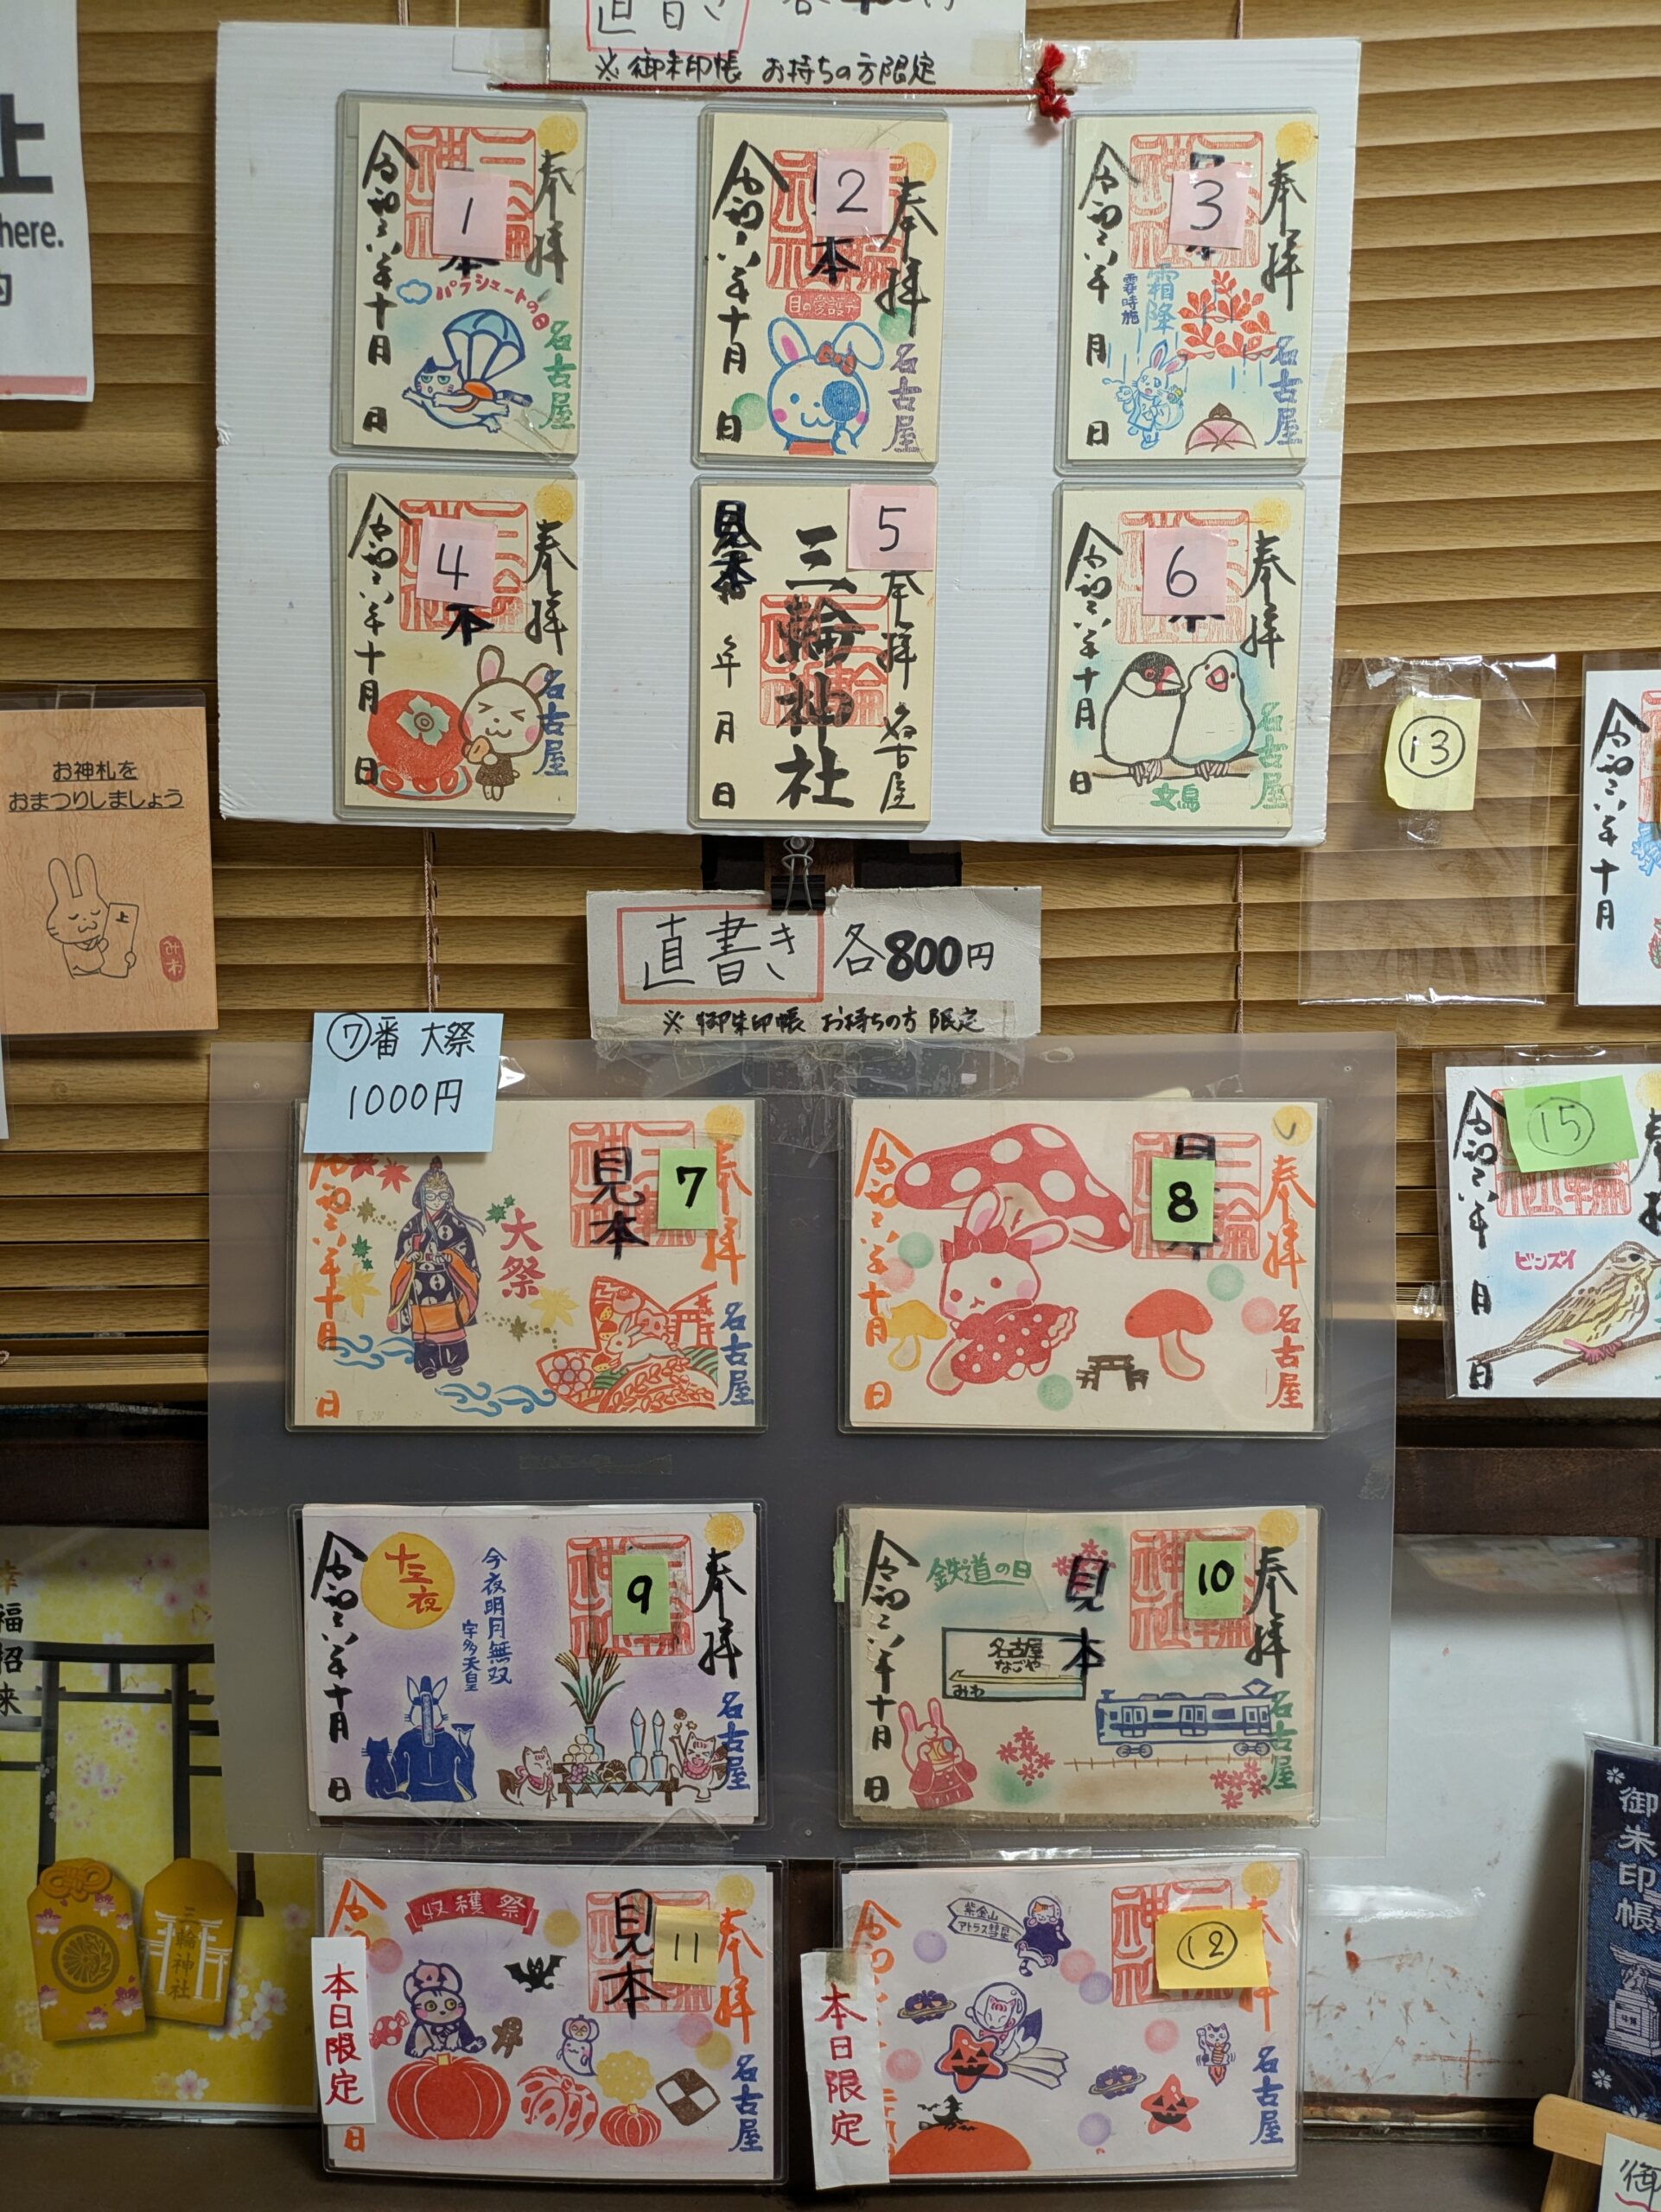 直書き 各
※御朱印帳 お持ちの方限定
上
here.
1
奉拝
令和六年十月 日
パラシュートの日
名古屋
2
本
奉拝
令和六年十月 日
目の愛護デー
名古屋
3
奉拝
令和六年 月 日
霜降
霎時施
名古屋
4
本
奉拝
令和六年十月 日
名古屋
5
見本
奉拝
三輪神社
年 月 日
名古屋
6
本
奉拝
令和六年十月 日
文鳥
名古屋
13
令和六年十月
お神札を
おまつりしましょう
上
みわ
直書き 各800円
※御朱印帳 お持ちの方限定
⑦番 大祭
1000円
7
見本
奉拝
大祭
令和六年十月 日
名古屋
8
奉拝
令和六年十月 日
名古屋
15
令和六年 月 日
ビンズイ
9
奉拝
十三夜
今夜明月無双
宇多天皇
令和六年十月 日
名古屋
10
見本
奉拝
鉄道の日
名古屋
なごや
みわ
令和六年十月 日
名古屋
幸福招来
三輪神社
11
見本
奉拝
収穫祭
本日限定
日
名古屋
12
紫金山
アトラス彗星
本日限定
名古屋
御朱印帳
御